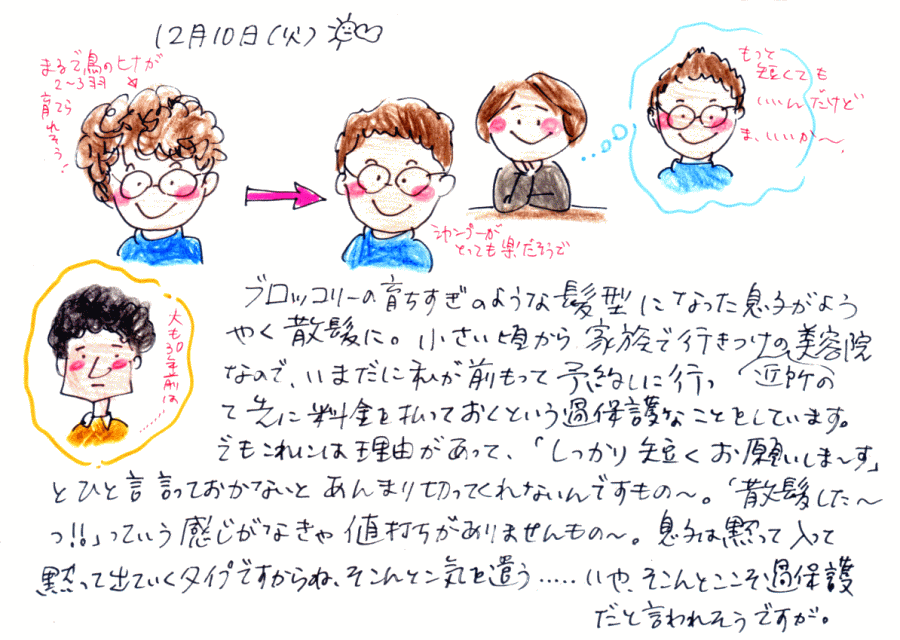 12月10日(火)
まるで鳥のヒナが
2～3羽
育てら
れそう!
もっと
短くても
いいんだけど
ま、いいか～
シャンプーが
とっても楽だそうで
夫も30年前は………
ブロッコリーの育ちすぎのような髪型になった息子がよう
やく散髪に。小さい頃から家族で行きつけの美容院
なので、いまだに私が前もって予約しに行っ
近所の
て先に料金を払っておくという過保護なことをしています。
でもこれには理由があって、「しっかり短くお願いしま～す」
とひと言言っておかないとあんまり切ってくれないんですもの～。「散髪した～
っ!!」っていう感じがなきゃ値打ちがありませんもの～。息子は黙って入って
黙って出ていくタイプですからね、そこんとこ気を遣う.....いや、そこんとここそ過保護
だと言われそうですが。